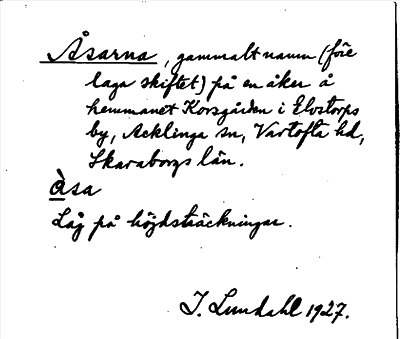 Åsarna, gammalt namn (före
laga skiftet) på en åker å
hemmanet Korsgården i Elvstorps
by, Acklinga sn, Vartofta hd,
Skaraborgs län.
Àsa
Låg på höjdsträckningar.
I. Lundahl 1927.